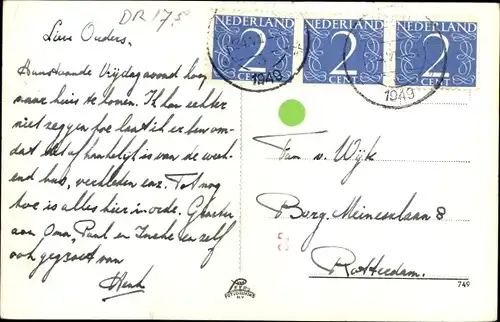 DR 175
Lieve Ouders,
Aanstaande Vrijdagavond hoop
naar huis te komen. Ik kan echter
niet zeggen hoe laat ik er ben om-
dat het afhankelijk is van de
en bus, verbleden enz. Tot nog
toe is alles hier in orde. Groeten
aan Oma, Paul en Ineke en zelf
ook gegroet van
Henk
NEDERLAND
2
CENT
NEDERLAND
2
CENT
NEDERLAND
2
CENT
1949
1949
Fam v. Wijk
Burg. Meineszlaan 8
Rotterdam.
749